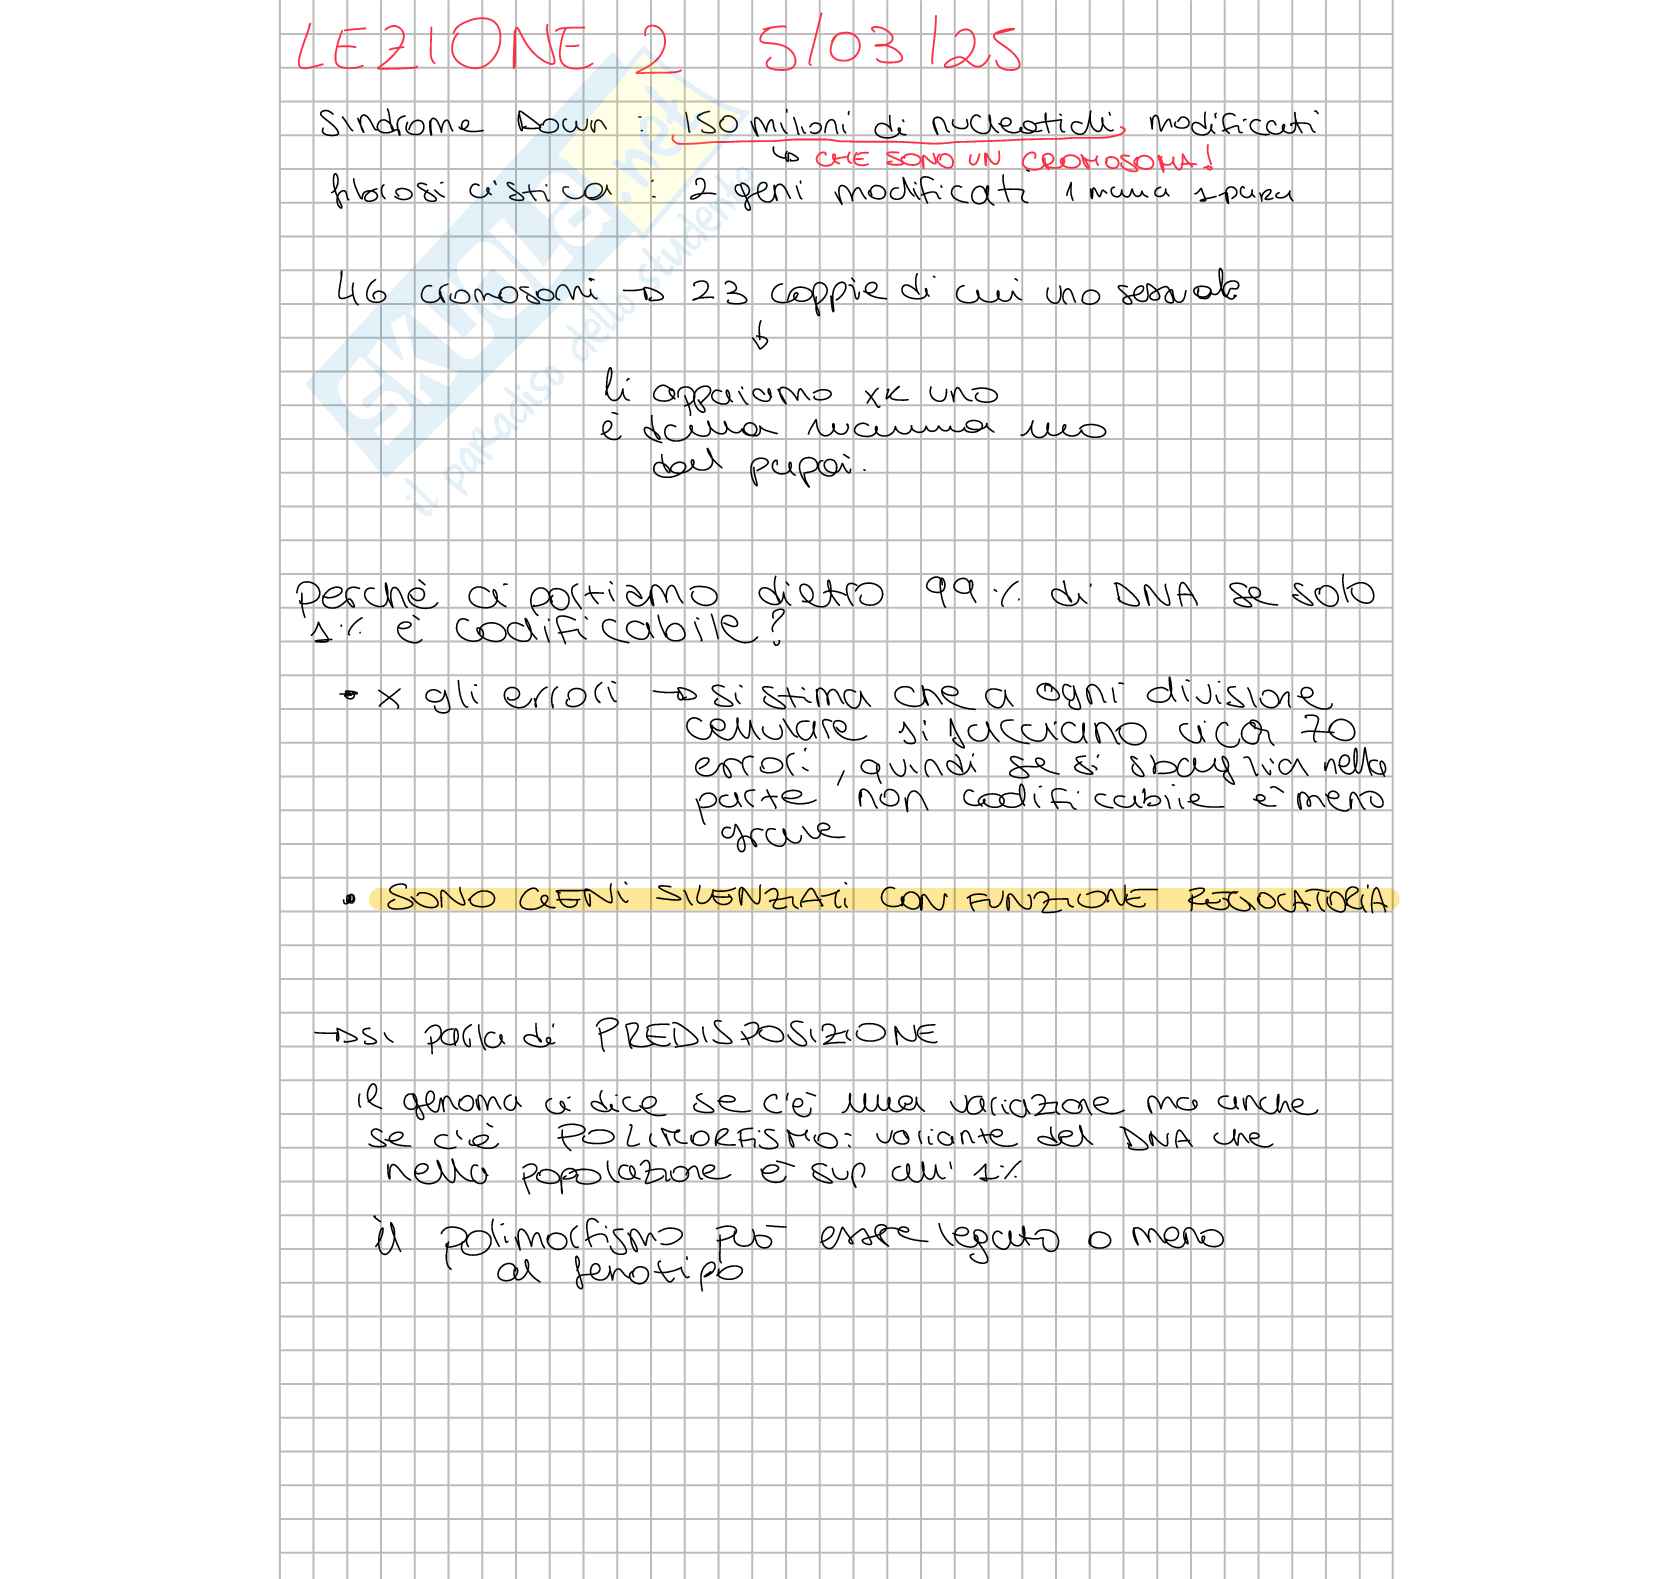 LEZIONE 2 5/03/25
Sindrome Down : 150 milioni di nucleotidi modificati
↳ CHE SONO UN CROMOSOMA!
fibrosi cistica : 2 geni modificati 1 mamma 1 papà
46 cromosomi → 23 coppie di cui uno sessuale
↓
li appaiamo xk uno
è della mamma uno
del papai.
Perchè ci portiamo dietro 99% di DNA se solo
1% è codificabile?
• x gli errori → si stima che a ogni divisione
cellulare si facciano circa 70
errori, quindi se si sbaglia nella
parte non codificabile è meno
grave
• SONO GENI SILENZIATI CON FUNZIONE REGOLATORIA
→ si parla di PREDISPOSIZIONE
il genoma ci dice se c'è una variazione ma anche
se c'è POLIMORFISMO: variante del DNA che
nella popolazione è sup all' 1%
il polimorfismo può essere legato o meno
al fenotipo
SKUOLA.net
il paradiso dello studente